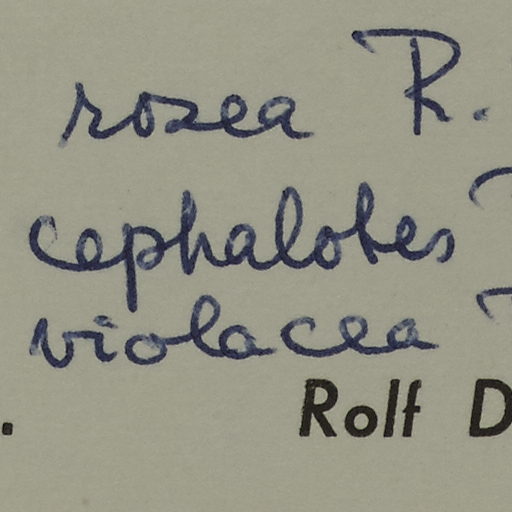 rosea R.
cephalotes
violacea
. Rolf D